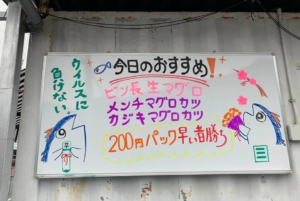 ウイルスに
負けない
今日のおすすめ!
ビン長生マグロ
メンチマグロカツ
カジキマグロカツ
200円パック早い者勝ち